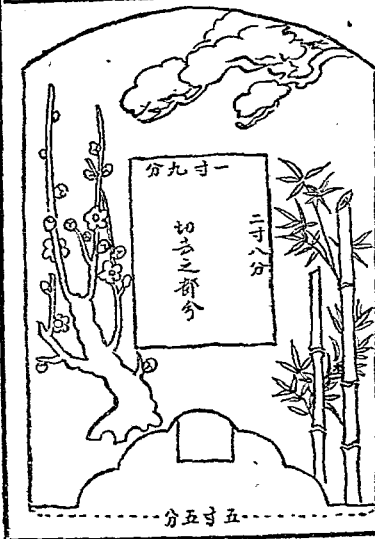 一寸九分
二寸八分
切去之部分
五寸五分